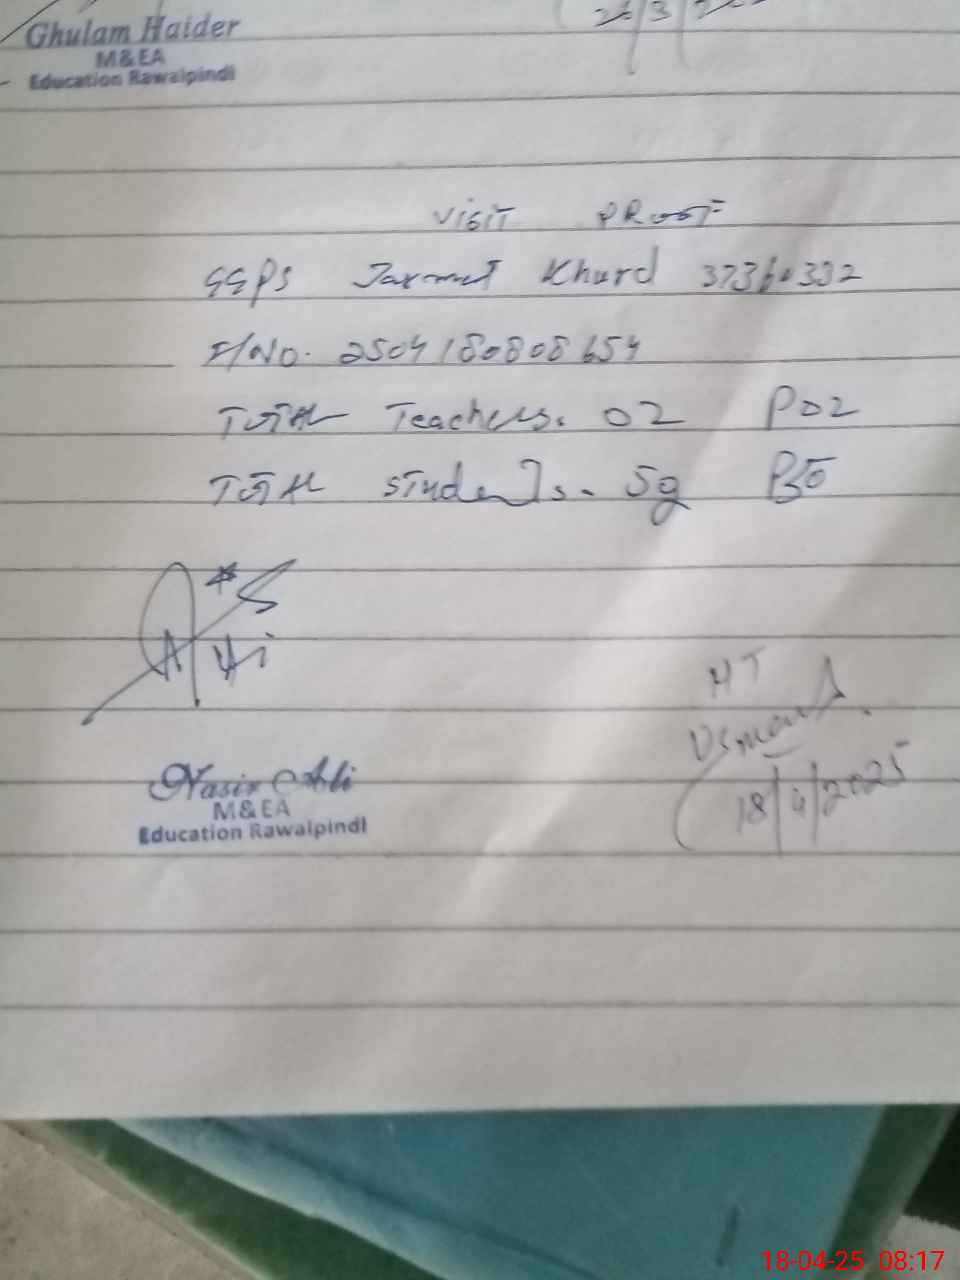 Ghulam Haider
M&EA
Education Rawalpindi
26/3/
VISIT PROOF
GGPS Khurd 37360332
I/NO. 2504180808654
Total Teachers. 02 P02
Total Students. 59 P50
Nasir Ali
M&EA
Education Rawalpindi
HT
Usman
18/4/2025
18-04-25 08:17